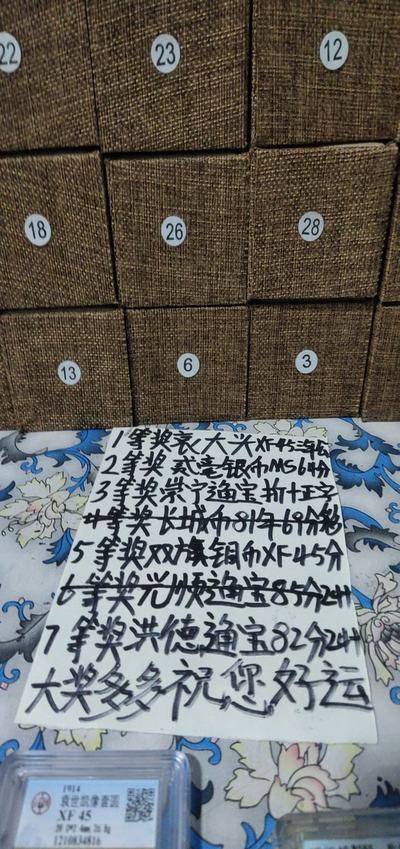 22
23
12
18
26
28
13
6
3
1等奖袁大头XF45三年公
2等奖贰毫银币MS64分
3等奖崇宁通宝折十正字
4等奖长城币81年69分
5等奖双旗铜币XF45分
6等奖光顺通宝85分24H
7等奖洪德通宝82分24H
大奖多多祝您好运
1914
袁世凯像壹圆
XF 45
1210834816